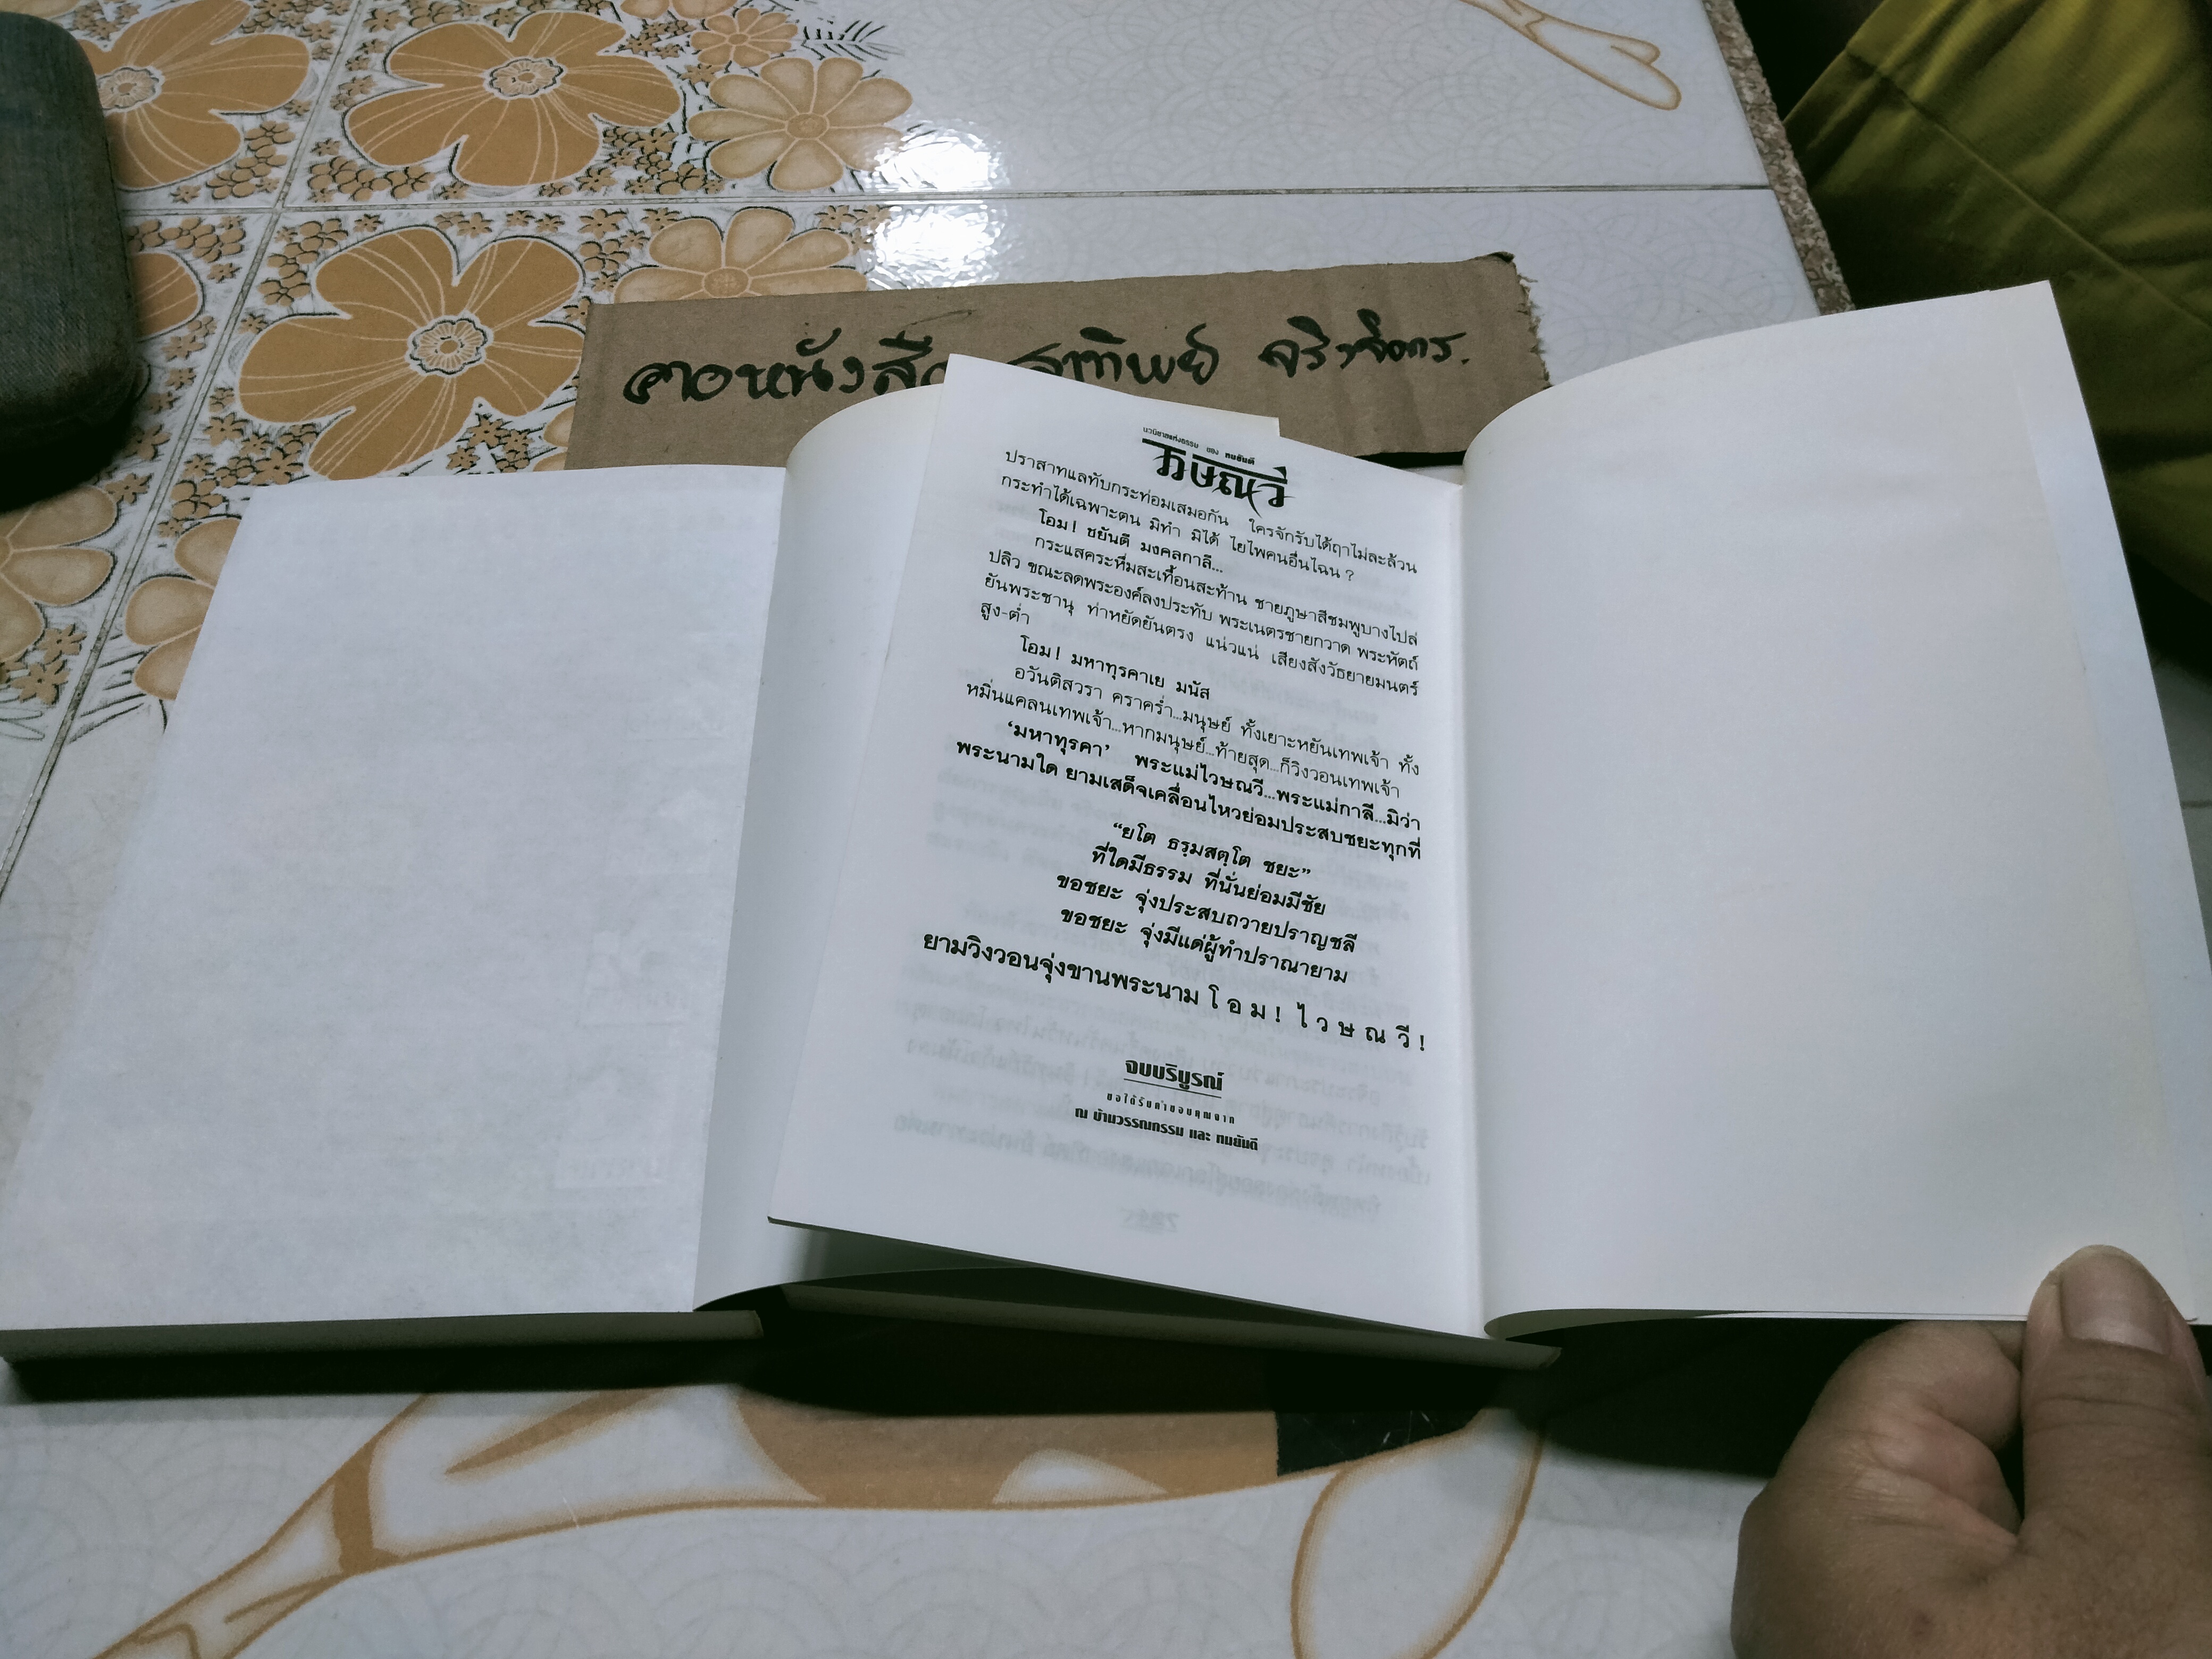 นวนิยายแห่งธรรม ของ ทมยันตี
ไวษณวี
ปราสาทแลทับกระท่อมเสมอกัน ใครจักรับได้ฤาไม่ละล้วน
กระทำได้เฉพาะตน มิทำ มิได้ ไยไพคนอื่นไฉน ?
โอม ! ชยันตี มงคลกาลี...
กระแสคระหึ่มสะเทื้อนสะท้าน ชายภูษาสีชมพูบางไปล่
ปลิว ขณะลดพระองค์ลงประทับ พระเนตรชายกวาด พระหัตถ์
ยันพระชานุ ท่าหยัดยันตรง แน่วแน่ เสียงสังวัธยายมนตร์
สูง-ต่ำ
โอม ! มหาทุรคาเย มนัส
อวันติสวรา คราคร่ำ...มนุษย์ ทั้งเยาะหยันเทพเจ้า ทั้ง
หมิ่นแคลนเทพเจ้า...หากมนุษย์...ท้ายสุด...ก็วิงวอนเทพเจ้า
‘มหาทุรคา’ พระแม่ไวษณวี...พระแม่กาลี...มิว่า
พระนามใด ยามเสด็จเคลื่อนไหวย่อมประสบชยะทุกที่
“ยโต ธรฺมสตฺโต ชยะ”
ที่ใดมีธรรม ที่นั่นย่อมมีชัย
ขอชยะ จุ่งประสบถวายปราญชลี
ขอชยะ จุ่งมีแด่ผู้ทำปราณายาม
ยามวิงวอนจุ่งขานพระนาม โ อ ม ! ไ ว ษ ณ วี !
ฉบับบริบูรณ์
ขอได้รับคำขอบคุณจาก
ณ บ้านวรรณกรรม และ ทมยันตี